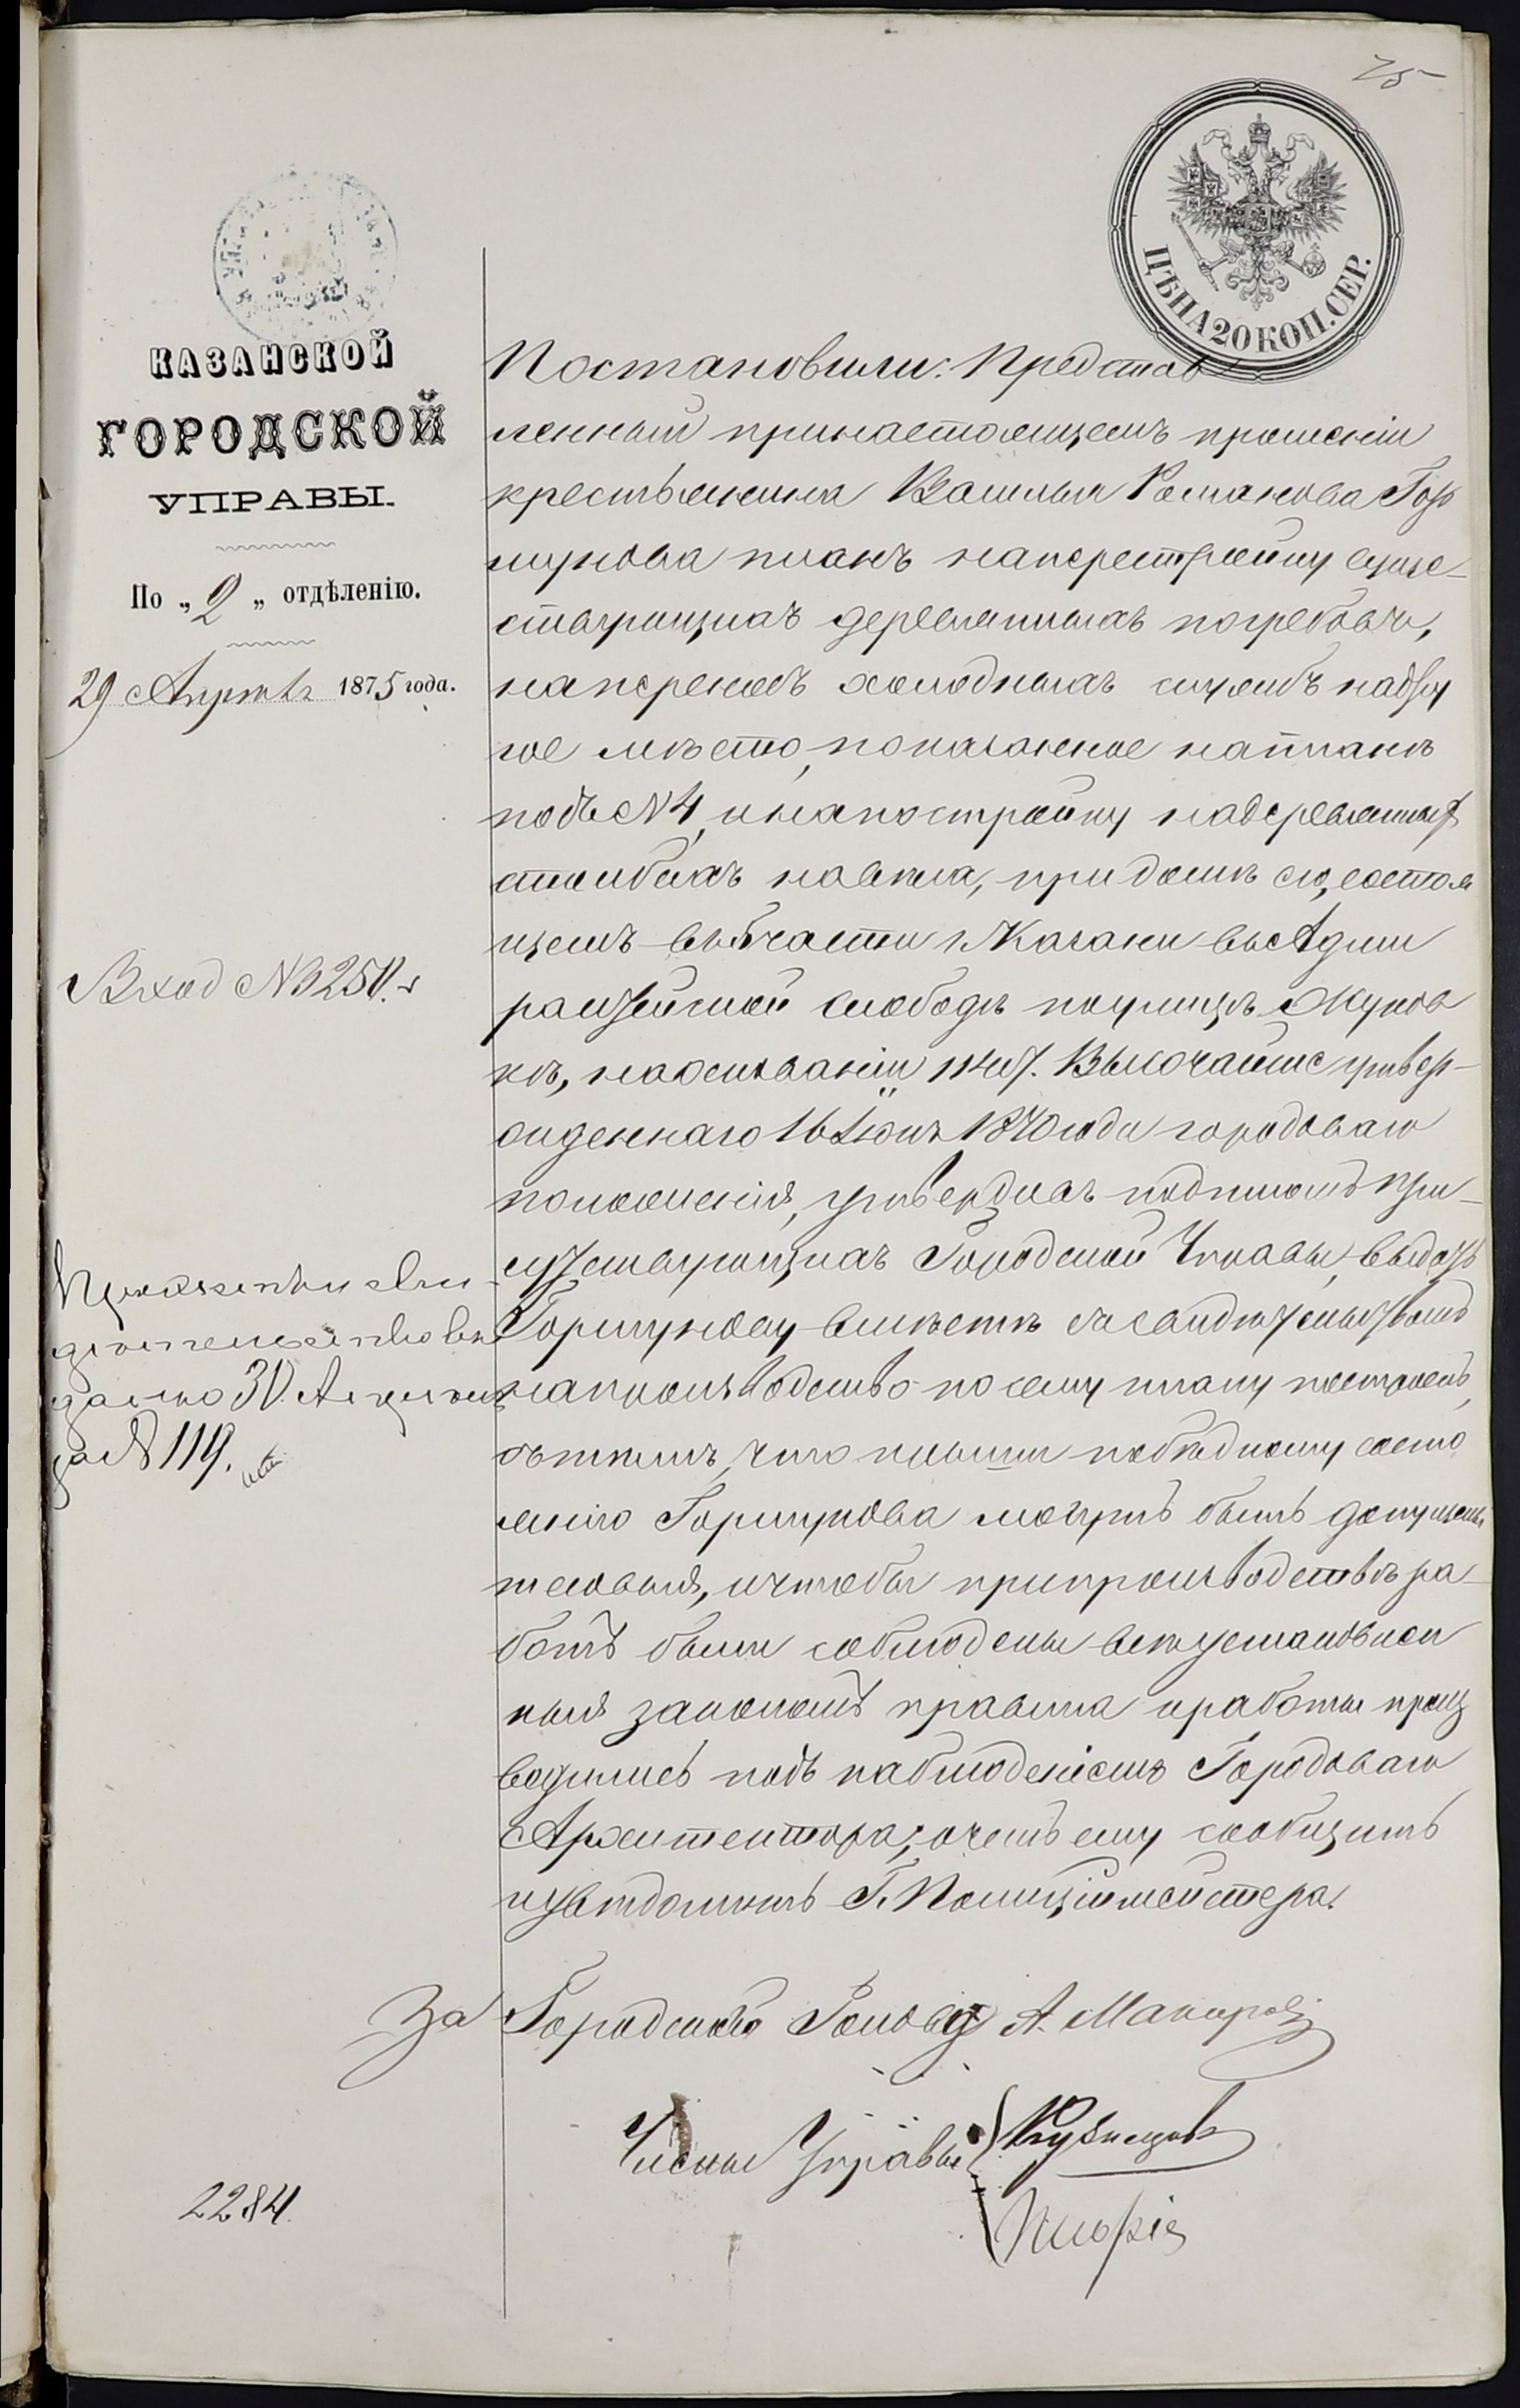 75
ЦѢНА 20 КОП. СЕР.
КАЗАНСКОЙ
ГОРОДСКОЙ
УПРАВЫ.
По „2„ отдѣленію.
29 Апрѣля 1875 года.
Вход №3250.
119.
2284.
Постановили: Представ
ленный принастоящемъ прошеніи
крестьянина Василья Романова Гор
шунова планъ наперестройку суще-
ствующихъ деревянныхъ погребовъ,
напереносъ холодныхъ службъ надру
гое мѣсто, показанное напланѣ
подъ №4, и напостройку надеревянныхъ
столбахъ навѣса, при домѣ его, состоя
щемъ в части г. Казани въ Адми
ралтейской слободѣ поулицѣ Жуков
кѣ, наоснованіи 114 ст. Высочайше утвер-
жденнаго 16 Іюня 1870 года городоваго
положенія, утвердивъ подписомъ при-
сутствующихъ Городской Управы, выдать
Горшунову вмѣстѣ съ свидѣтельствомъ
напроизводство по сему плану построекъ,
съ тѣмъ, что крыши побѣдному состо
янію Горшунова могутъ быть допущены
тесовыя, и чтобы припроизводствѣ ра-
ботъ были соблюдены всѣ установлен
ныя закономъ правила и работы произ
водились подъ наблюденіемъ Городоваго
Архитектора; о чемъ ему сообщить
и увѣдомить Г. Полиціймейстера.
За Городскаго Голову А. Макаровъ
Члены Управы Кузнецовъ